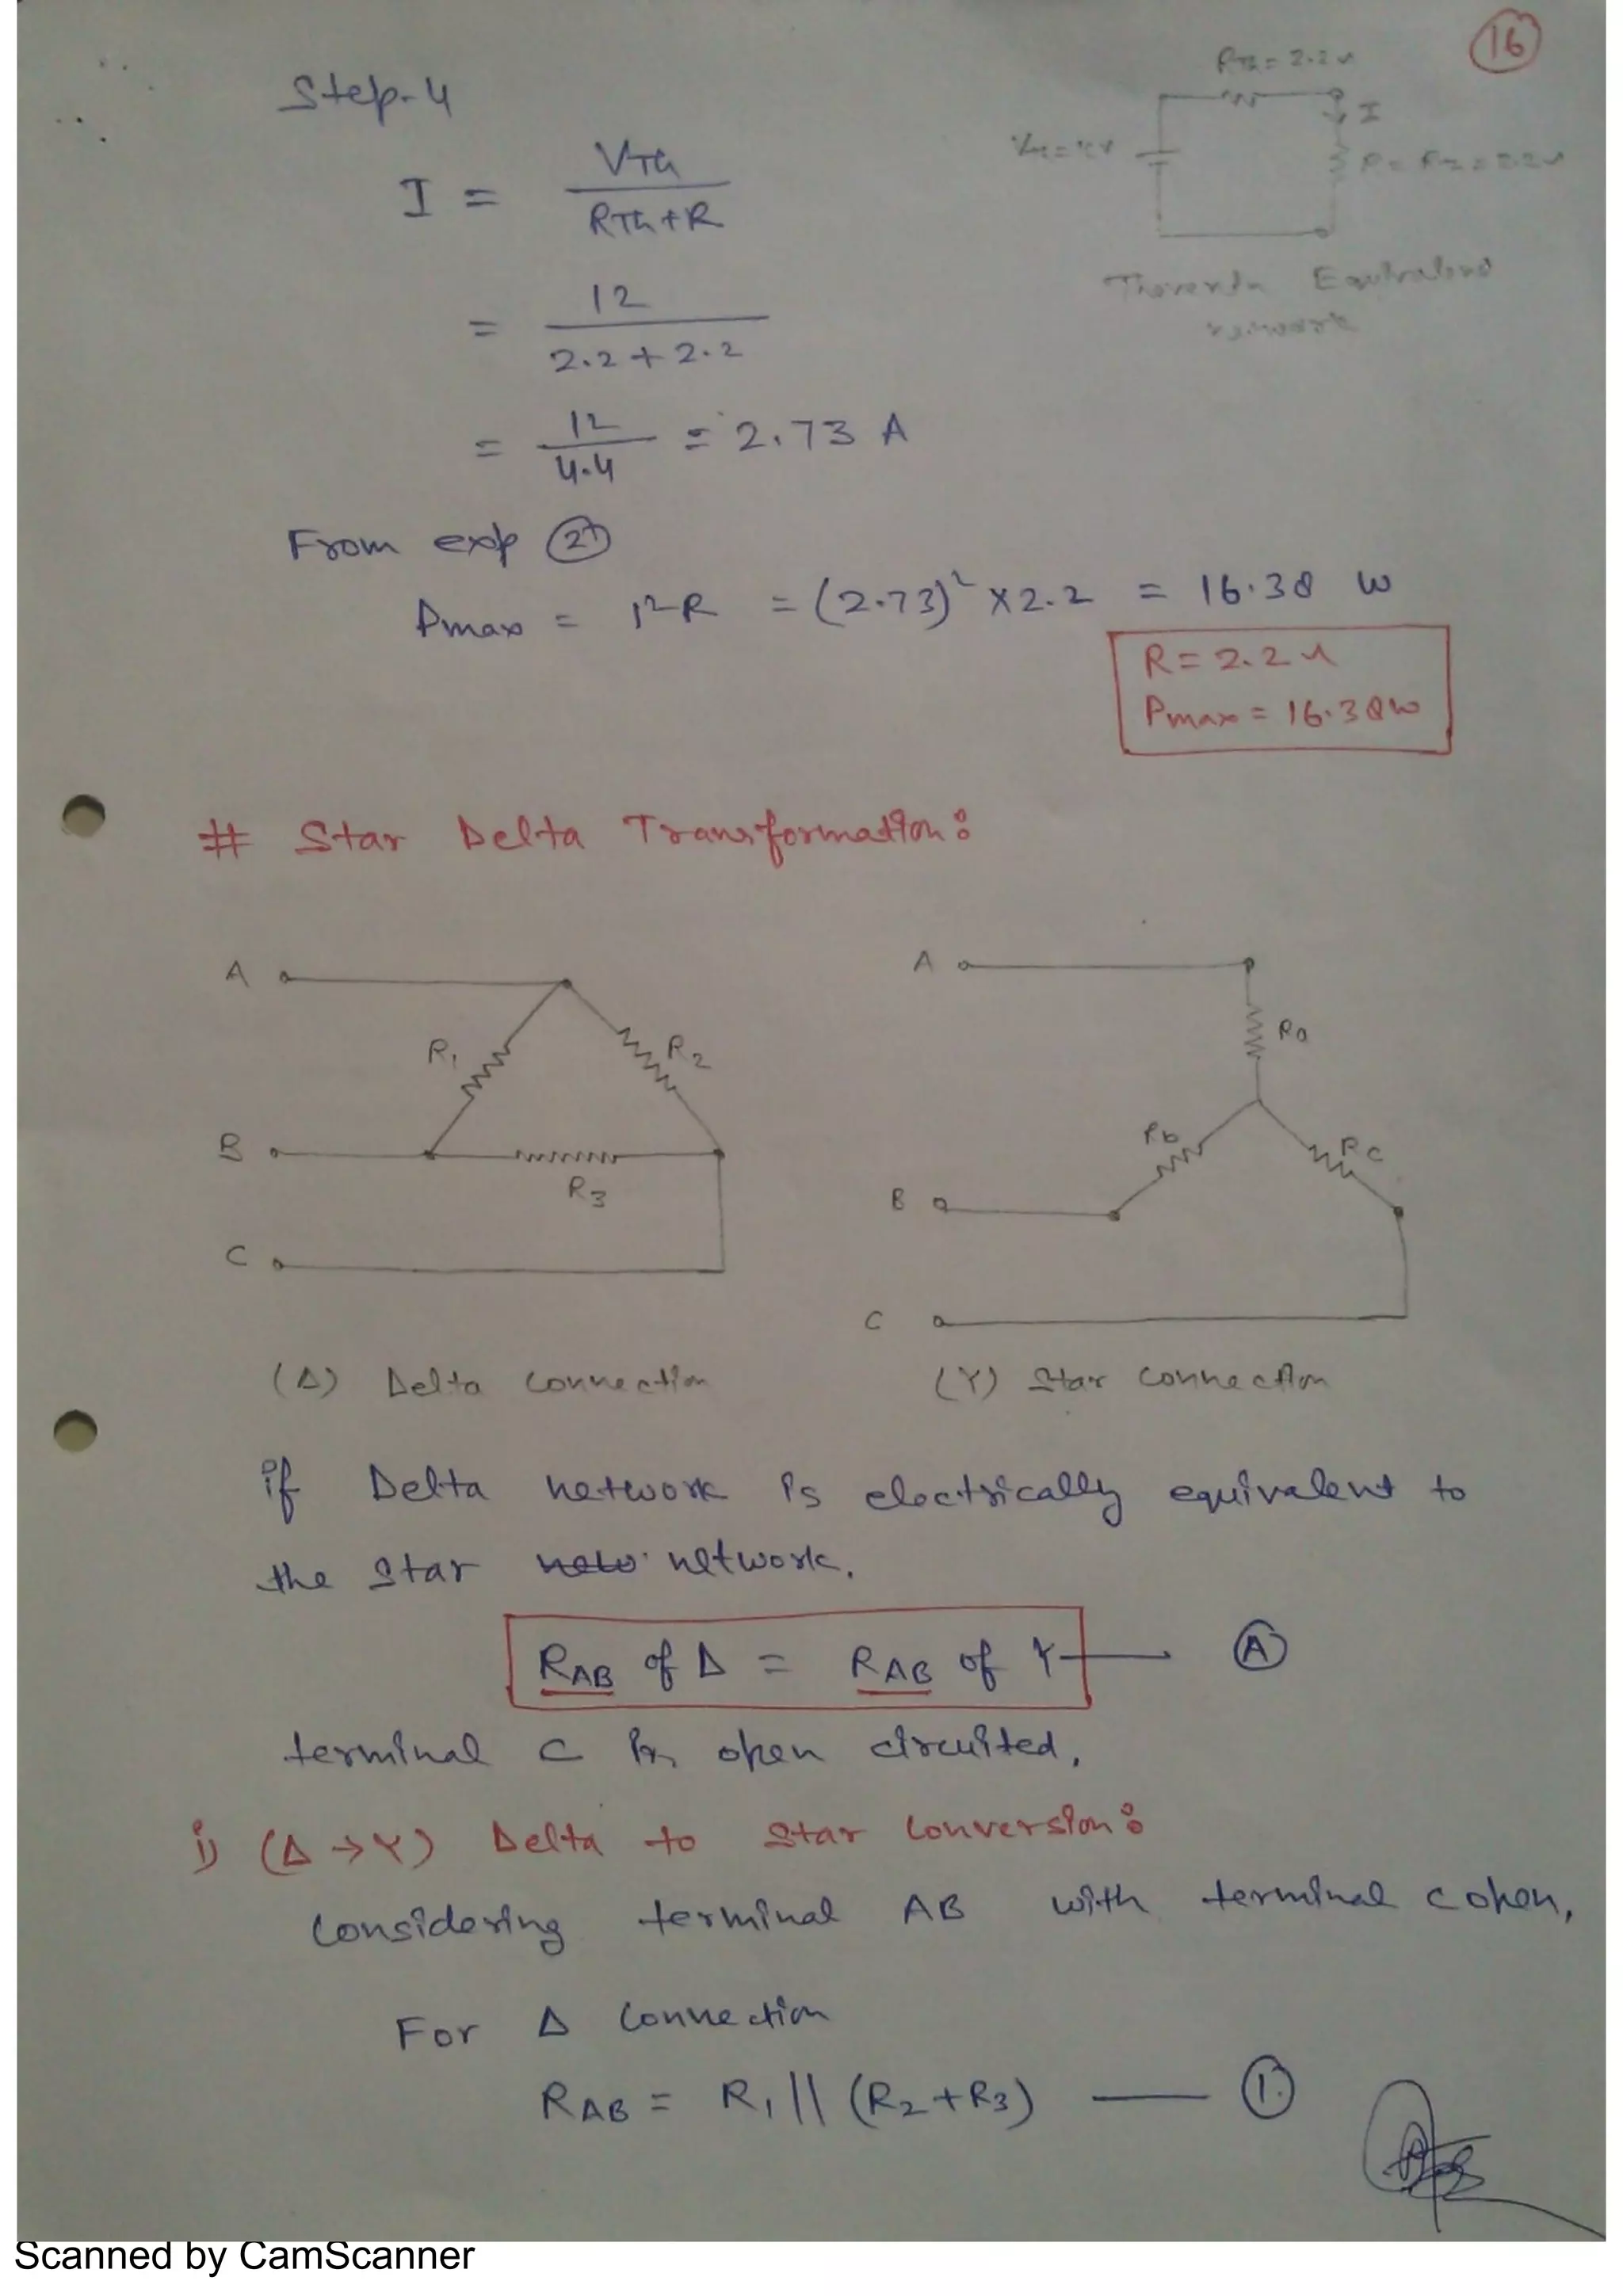 16
Step-4
RTh = 2.2 Ω
I
I = VTh / RTh + R
= 12 / 2.2 + 2.2
Equivalent
= 12 / 4.4 = 2.73 A
From exp (2)
Pmax = I²R = (2.73)² × 2.2 = 16.38 W
R = 2.2 Ω
Pmax = 16.38 W
# Star Delta Transformation:
A R1 R2 B R3 C
A Ra Rb Rc B C
(Δ) Delta Connection
(Y) Star Connection
if Delta network is electrically equivalent to
the Star network.
RAB of Δ = RAB of Y — (A)
terminal C is open circuited,
i) (Δ → Y) Delta to Star Conversion:
Considering terminal AB with terminal C open,
For Δ Connection
RAB = R1 || (R2 + R3) — (1)
Scanned by CamScanner